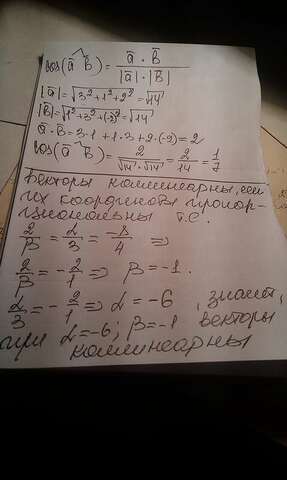 cos(a̅ ^ b̅) = a̅ · b̅ / |a̅| · |b̅|
|a̅| = √3²+1²+2² = √14
|b̅| = √1²+3²+(-2)² = √14
a̅ · b̅ = 3·1 + 1·3 + 2·(-2) = 2
cos(a̅ ^ b̅) = 2 / √14 · √14 = 2/14 = 1/7
Векторы коллинеарны, если
их координаты пропор-
циональны т.е.
2/β = α/3 = -8/4 =>
2/β = -2/1 => β = -1.
α/3 = -2/1 => α = -6, значит,
при α = -6; β = -1 векторы
коллинеарны